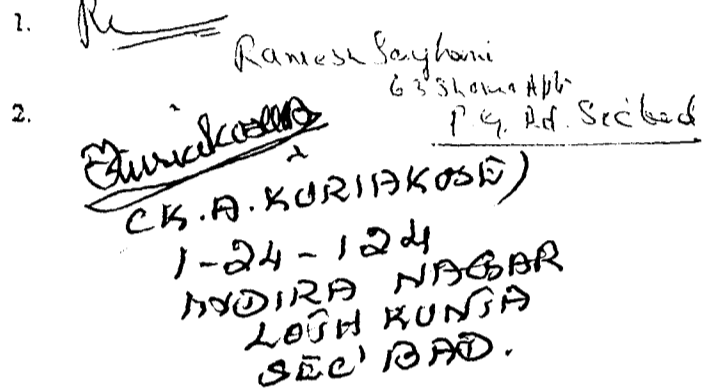 1.
Ramesh
63 Shoma Apt
P.G. Rd. Sec'bad
2.
(K.A. KURIAKOSE)
1-24-124
INDIRA NAGAR
LOTH KUNTA
SEC'BAD.